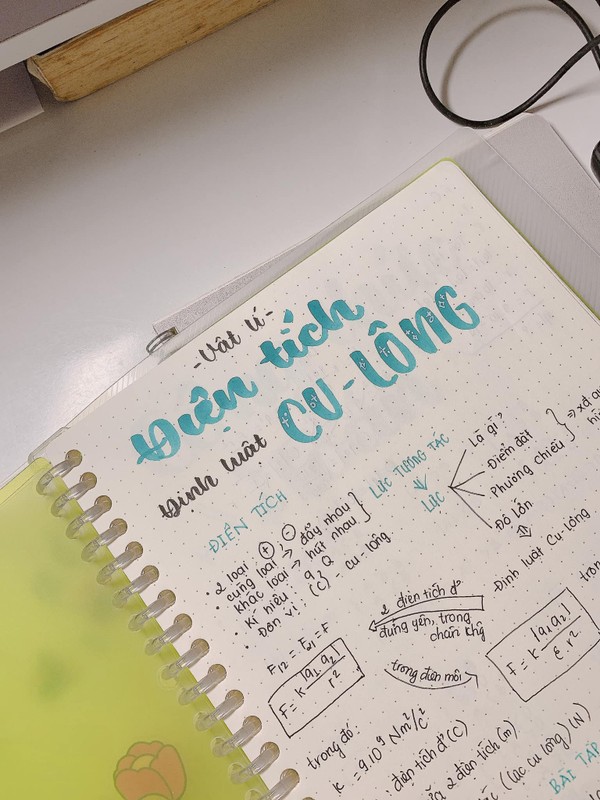 -Vật lí-
Điện tích
Định luật CU-LÔNG
ĐIỆN TÍCH
• 2 loại: + -
• cùng loại → đẩy nhau
khác loại → hút nhau
• Kí hiệu: q, Q
• Đơn vị: (C) - cu-lông
LỰC TƯƠNG TÁC
LỰC
Là gì?
Điểm đặt
Phương chiều
Độ lớn
Định luật Cu-lông
2 điện tích đ'
đứng yên, trong
chân khg
F12 = F21 = F
F = k |q1 q2| / r²
trong điện môi
F = k |q1 q2| / ε.r²
trong đó:
k = 9.10⁹ Nm²/C²
điện tích đ' (C)
2 điện tích (m)
(lực cu lông) (N)
BÀI TẬP